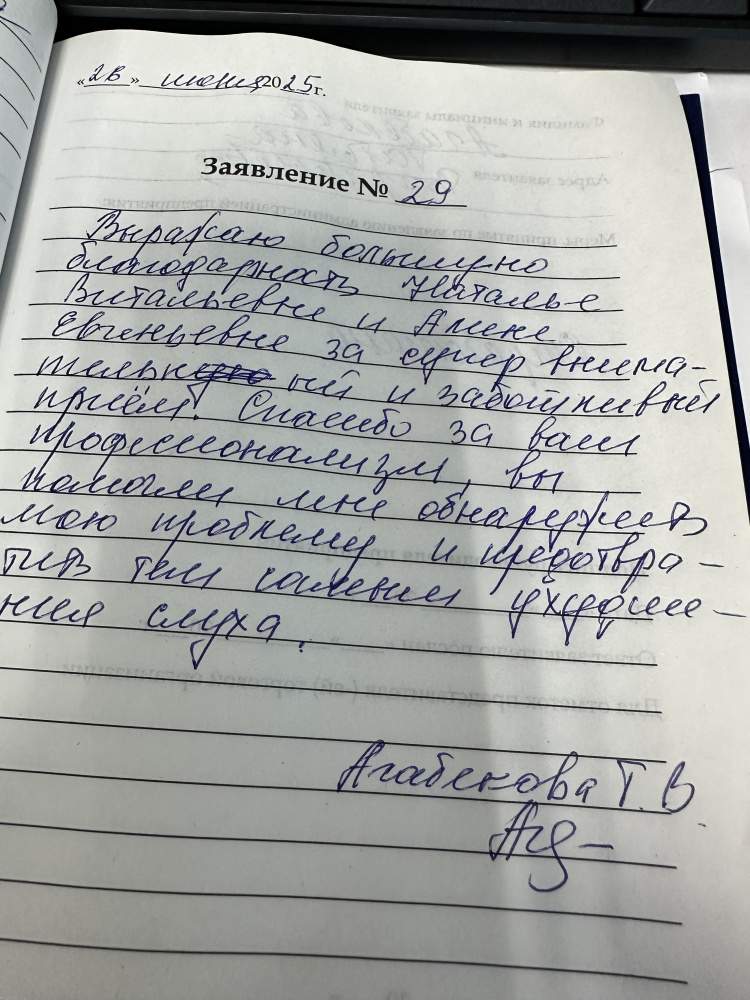 «26» июня 2025 г.
Заявление № 29
Выражаю большую
благодарность Наталье
Витальевне и Алене
Евгеньевне за супер внима-
тельный и заботливый
приём. Спасибо за ваш
профессионализм, вы
помогли мне обнаружить
мою проблему и предотвра-
тить тем самым ухудше-
ния слуха.
Агабекова Т.В.